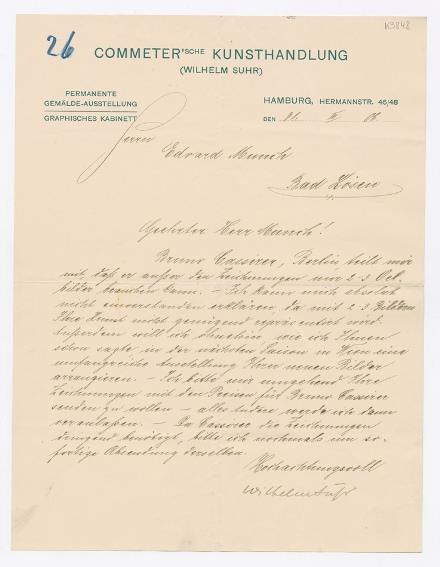 26
K3848
COMMETER'SCHE KUNSTHANDLUNG
(WILHELM SUHR)
PERMANENTE
GEMÄLDE-AUSSTELLUNG
GRAPHISCHES KABINETT
HAMBURG, HERMANNSTR. 46/48
DEN
Herrn
Edvard Munch
Bad Kösen
Geehrter Herr Munch!
Bruno Cassirer, Berlin teilt mir
mit daß er außer den Zeichnungen nur 2-3 Oel-
bilder brauchen kann. – Ich kann mich absolut
nicht einverstanden erklären, da mit 2-3 Bildern
Ihre Kunst nicht genügend repräsentiert wird.
Außerdem will ich ohnehin, wie ich Ihnen
schon sagte in der nächsten Saison in Wien eine
umfangreiche Ausstellung Ihrer neuen Bilder
arrangieren. – Ich bitte nur umgehend Ihre
Zeichnungen mit den Preisen für Bruno Cassirer
senden zu wollen – alles Andere werde ich dann
veranlaßen. – Da Cassirer die Zeichnungen
dringend benötigt, bitte ich nochmals um so-
fortige Absendung derselben.
Hochachtungsvoll
Wilhelm Suhr